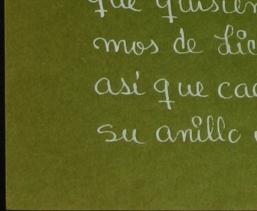 que quisier
mos de Lic
así que ca
su anillo